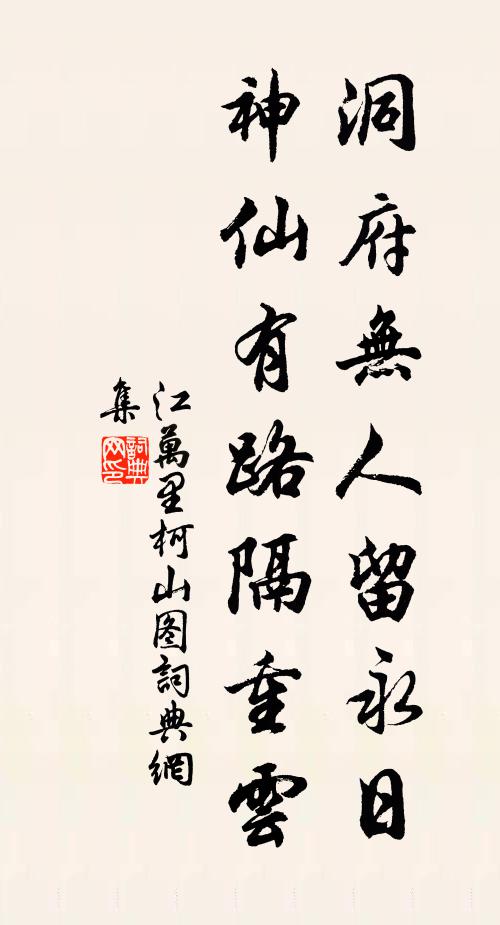 洞府無人留永日
神仙有路隔重雲
江萬里柯山图詞典網
集
詞典
网印